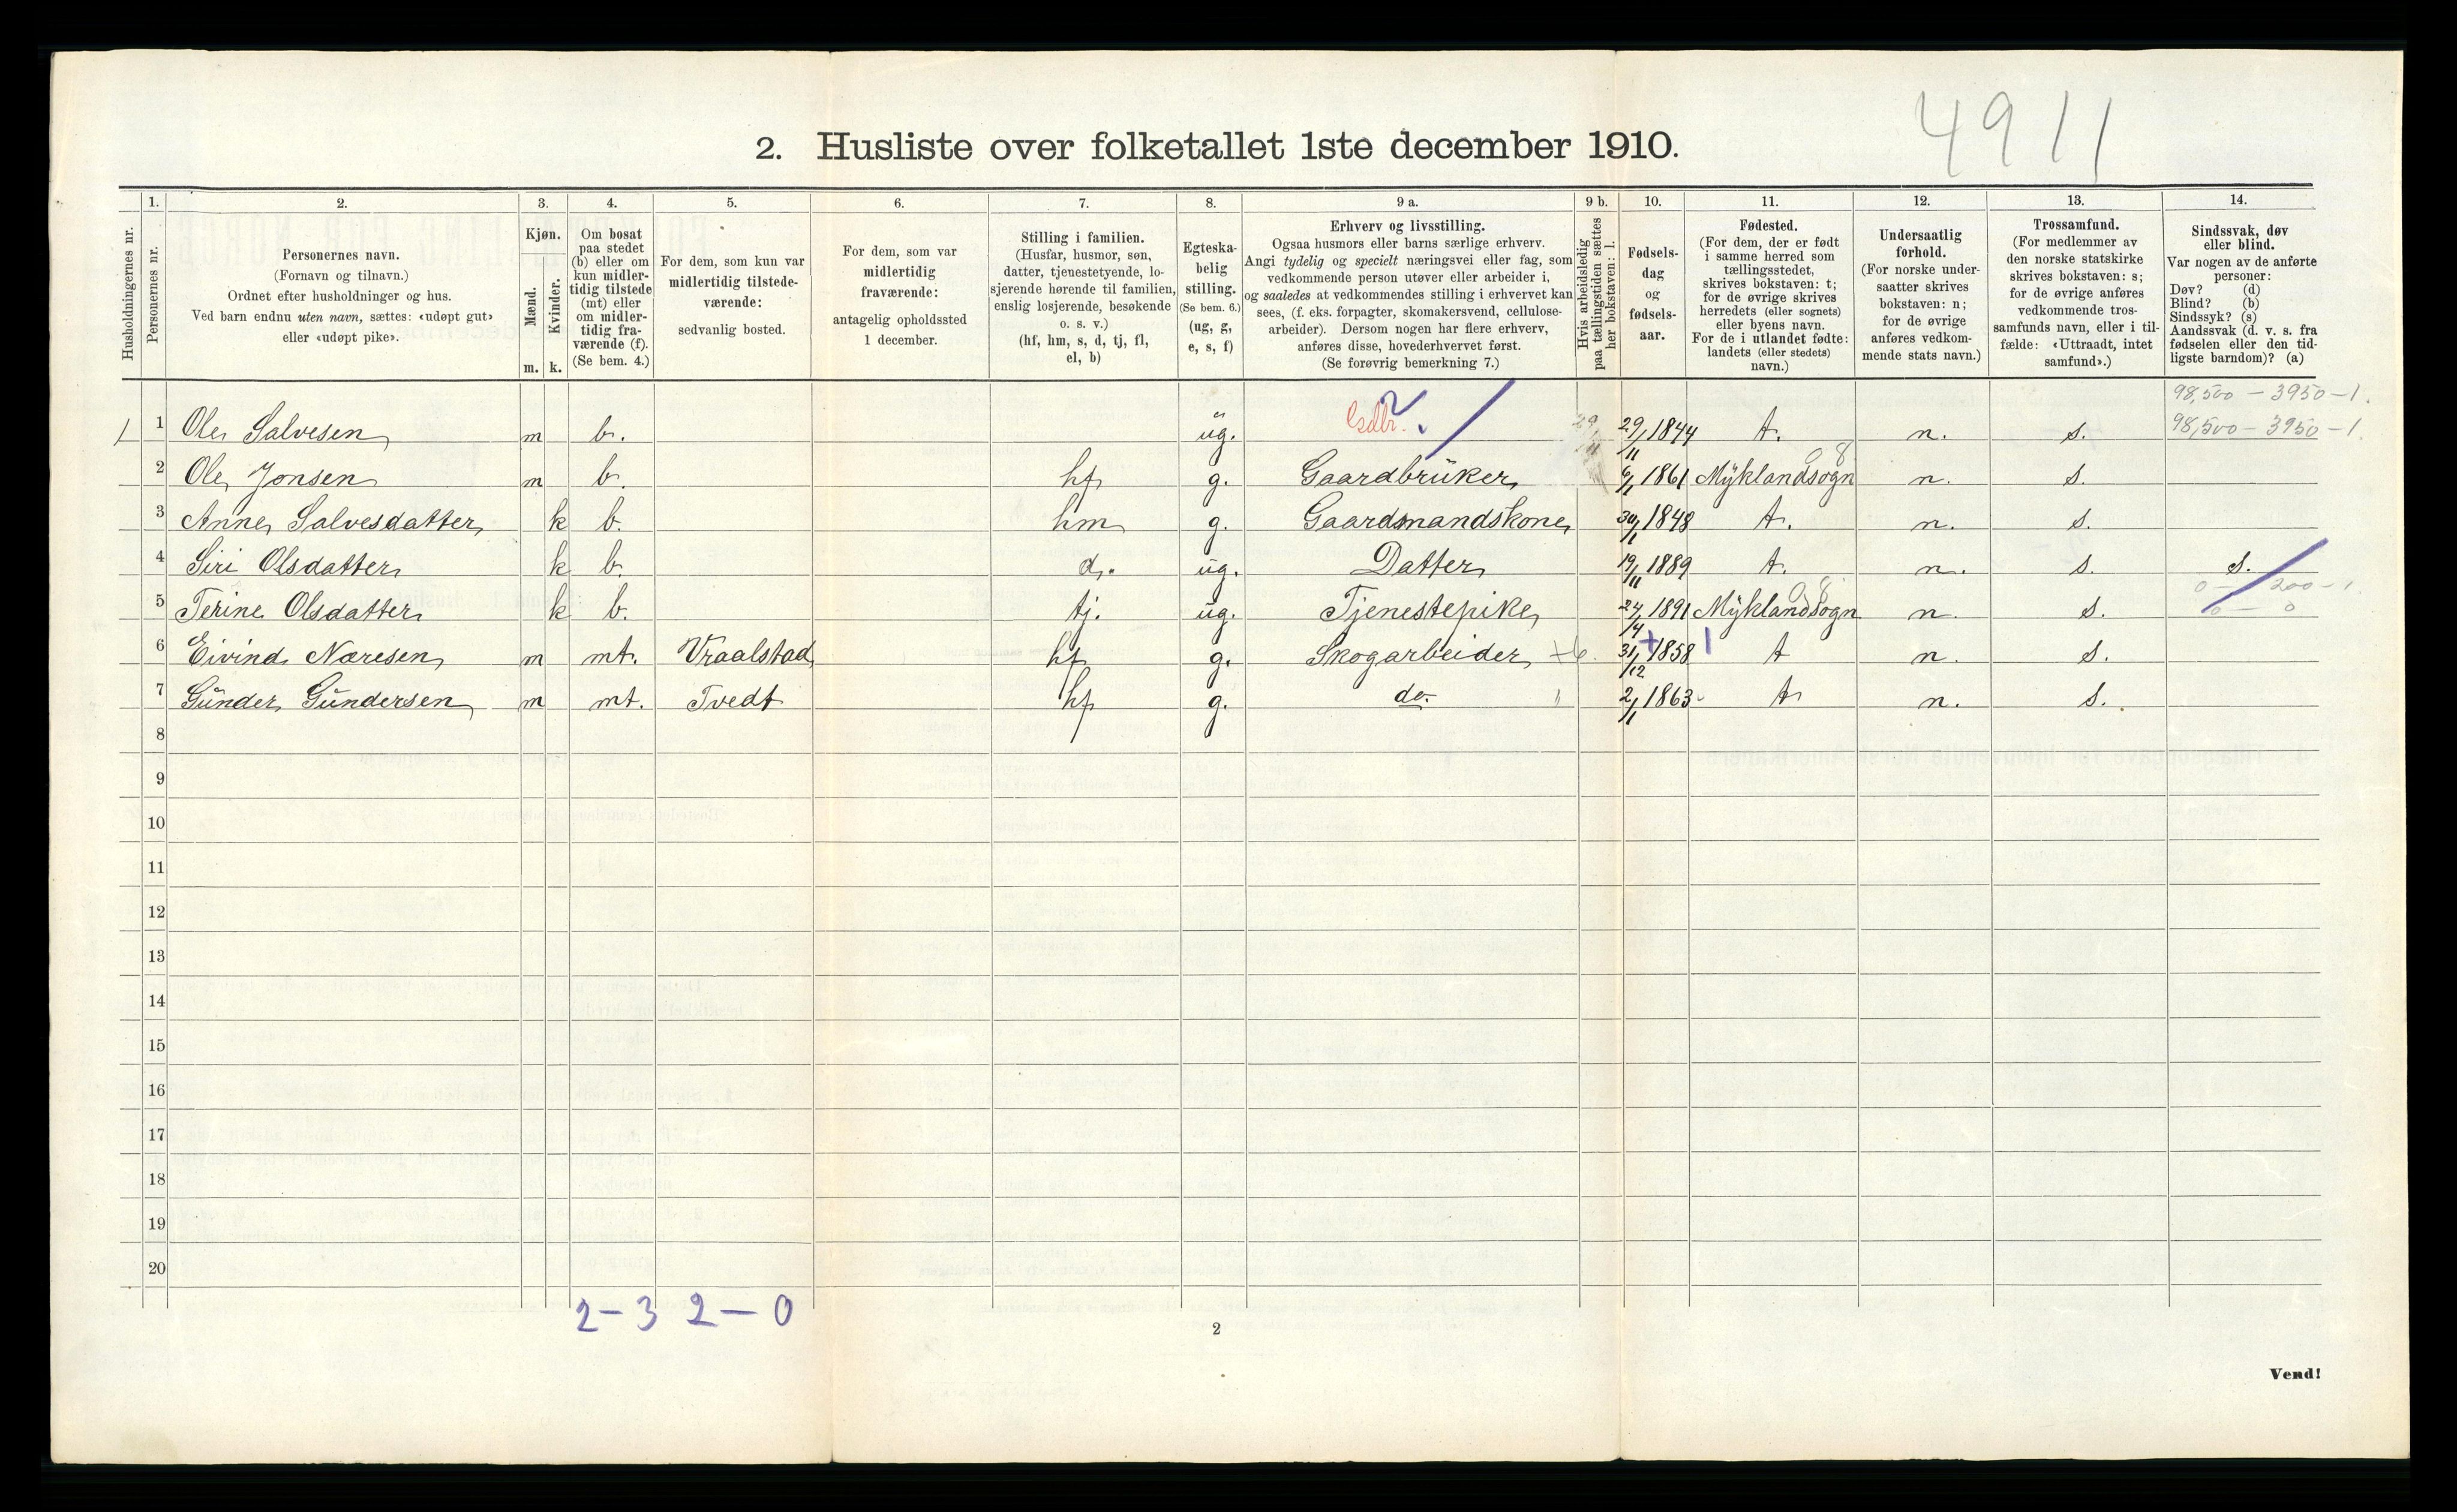 4911
2. Husliste over folketallet 1ste december 1910.
Husholdningernes nr.
1. Personernes nr.
2. Personernes navn. (Fornavn og tilnavn.) Ordnet efter husholdninger og hus. Ved barn endnu uten navn, sættes: «udøpt gut» eller «udøpt pike».
3. Kjøn. Mænd. m. Kvinder. k.
4. Om bosat paa stedet (b) eller om kun midlertidig tilstede (mt) eller om midlertidig fraværende (f). (Se bem. 4.)
5. For dem, som kun var midlertidig tilstedeværende: sedvanlig bosted.
6. For dem, som var midlertidig fraværende: antagelig opholdssted 1 december.
7. Stilling i familien. (Husfar, husmor, søn, datter, tjenestetyende, losjerende hørende til familien, enslig losjerende, besøkende o. s. v.) (hf, hm, s, d, tj, fl, el, b)
8. Egteskabelig stilling. (Se bem. 6.) (ug, g, e, s, f)
9 a. Erhverv og livsstilling. Ogsaa husmors eller barns særlige erhverv. Angi tydelig og specielt næringsvei eller fag, som vedkommende person utøver eller arbeider i, og saaledes at vedkommendes stilling i erhvervet kan sees, (f. eks. forpagter, skomakersvend, cellulosearbeider). Dersom nogen har flere erhverv, anføres disse, hovederhvervet først. (Se forøvrig bemerkning 7.)
9 b. Hvis arbeidsledig paa tællingstiden sættes her bokstaven: l.
10. Fødselsdag og fødselsaar.
11. Fødested. (For dem, der er født i samme herred som tællingsstedet, skrives bokstaven: t; for de øvrige skrives herredets (eller sognets) eller byens navn. For de i utlandet fødte: landets (eller stedets) navn.)
12. Undersaatlig forhold. (For norske undersaatter skrives bokstaven: n; for de øvrige anføres vedkommende stats navn.)
13. Trossamfund. (For medlemmer av den norske statskirke skrives bokstaven: s; for de øvrige anføres vedkommende trossamfunds navn, eller i tilfælde: «Uttraadt, intet samfund».)
14. Sindssvak, døv eller blind. Var nogen av de anførte personer: Døv? (d) Blind? (b) Sindssyk? (s) Aandssvak (d. v. s. fra fødselen eller den tidligste barndom)? (a)
98,500 - 3950 - 1.
1 1 Ole Salvesen m b. ug. Gdbr. 29/11 1844 t. n. s. 98,500 - 3950 - 1.
2 Ole Jonsen m b. hf g. Gaardbrüker 6/1 1861 Mÿklandsogn n. s.
3 Anne Salvesdatter k b. hm g. Gaardmandskone 30/1 1848 t. n. s.
4 Siri Olsdatter k b. d. ug. Datter 19/11 1889 t. n. s. s.
0 - 200 - 1.
5 Terine Olsdatter k b. tj. ug. Tjenestepike 24/4 1891 Mÿklandsogn n. s. 0 - 0
6 Eivind Næresen m mt. Vraalstad hf g. Skogarbeider 31/12 1858 t n. s.
7 Günder Gündersen m mt. Tvedt hf g. do. " 2/1 1863 t n. s.
8
9
10
11
12
13
14
15
16
17
18
19
20
2 - 3 2 - 0
2
Vend!